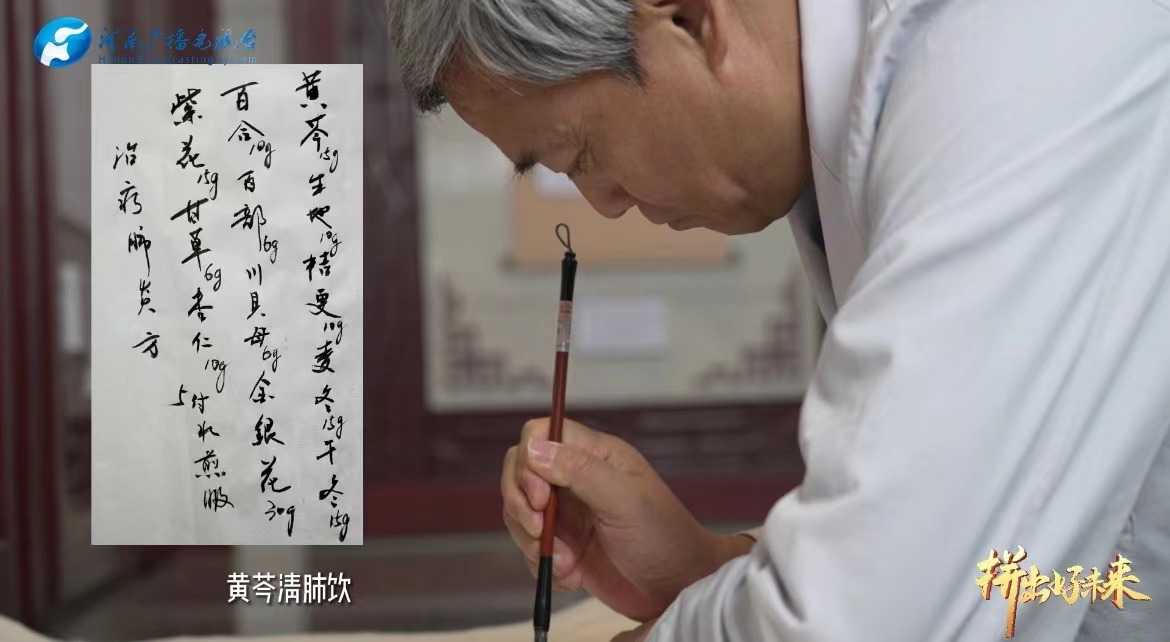 河南广播电视台
黄芩15g生地10g桔更10g麦冬15g干冬15g
百合10g百部6g川贝母6g金銀花30g
紫花15g甘草6g杏仁10g 5付水煎服
治疗肺炎方
黄芩清肺饮
拼出好未来